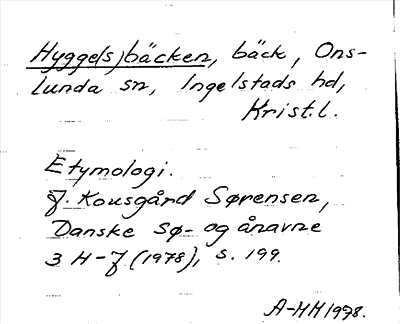 Hyggels)bäcken, bäck, Ons-
lunda sn, Ingelstads hd,
Krist.l.
Etymologi.
J. Kousgård Sørensen,
Danske Sø- og ånavne
3 H-J (1978), s. 199.
A-HH 1978.